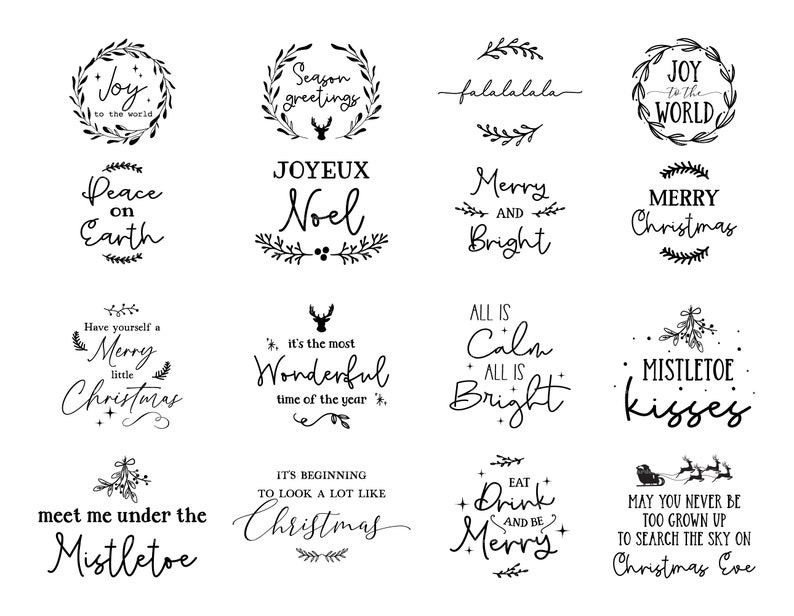 Joy
to the world
Season
greetings
falalalala
JOY
to the
WORLD
Peace
on
Earth
JOYEUX
Noel
Merry
AND
Bright
MERRY
Christmas
Have yourself a
Merry
little
Christmas
it's the most
Wonderful
time of the year
ALL IS
Calm
ALL IS
Bright
MISTLETOE
kisses
meet me under the
Mistletoe
IT'S BEGINNING
TO LOOK A LOT LIKE
Christmas
EAT
Drink
AND BE
Merry
MAY YOU NEVER BE
TOO GROWN UP
TO SEARCH THE SKY ON
Christmas Eve